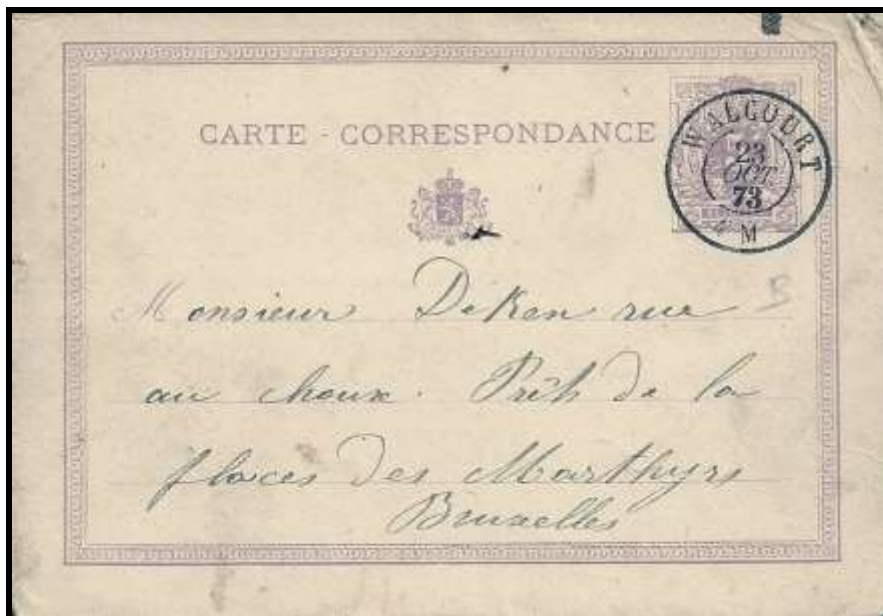 CARTE - CORRESPONDANCE
WALCOURT
23
OCT
73
4 M
B
Monsieur DeKen rue
au choux. Prêts de la
places des Marthyrs
Bruxelles